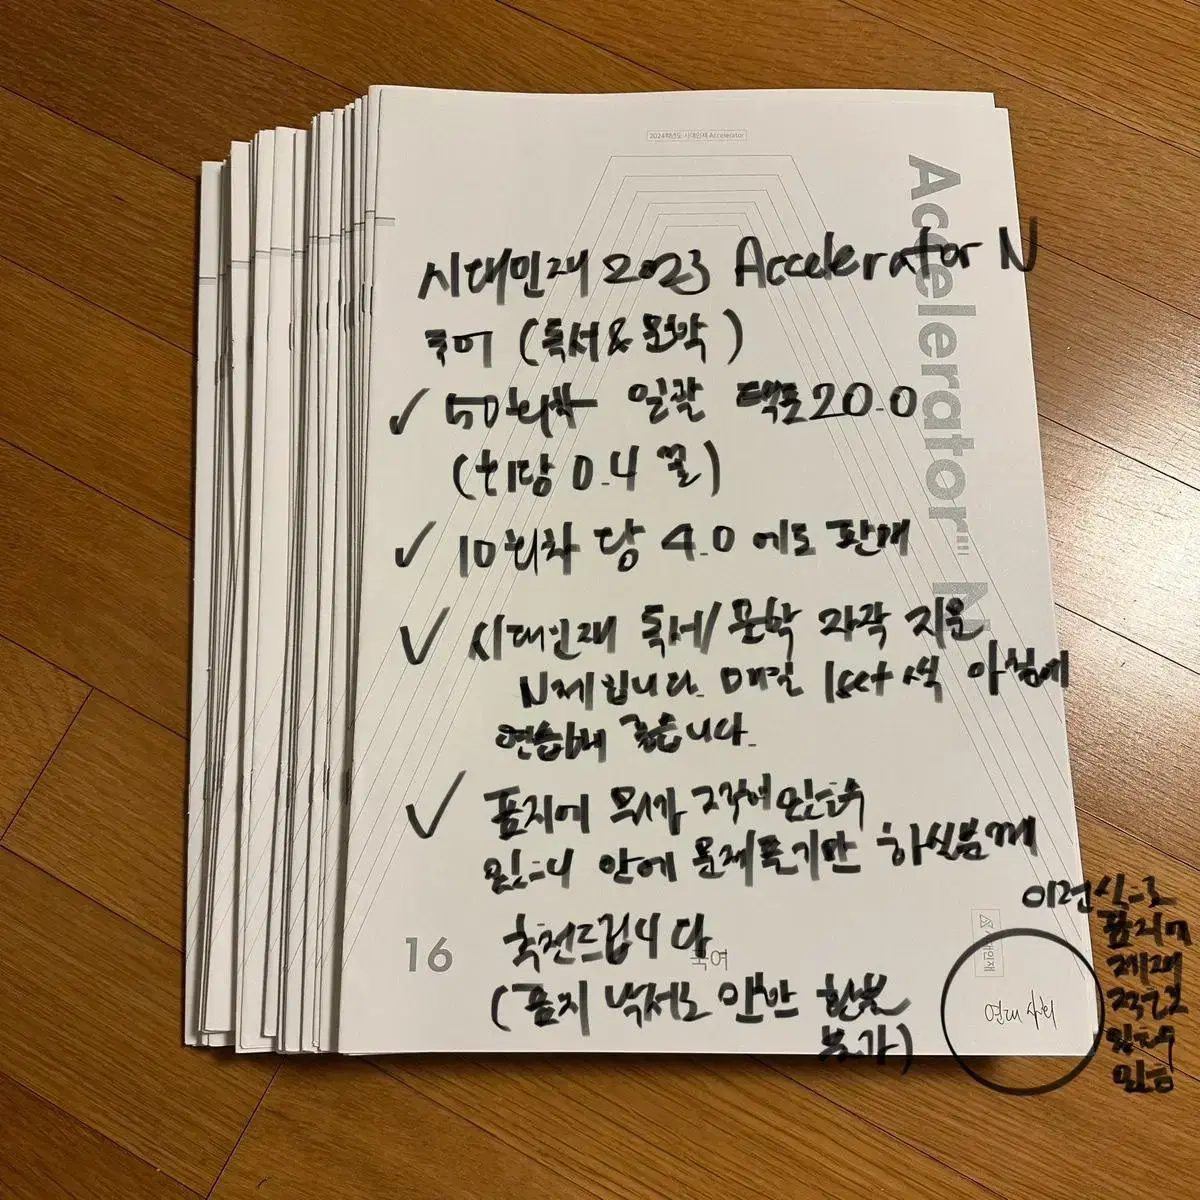 2024학년도 시대인재 Accelerator
Accelerator N
시대인재 2023 Accelerator N
국어 (독서 & 문학)
✓ 50회차 일괄 택포 20.0
(회당 0.4 꼴)
✓ 10회차 당 4.0 에도 판매
✓ 시대인재 독서/문학 자작 지문
N제입니다. 매일 1set 씩 아침에
연습하기 좋습니다.
✓ 표지에 뭐가 적혀있을수
있으니 안에 문제풀기만 하실분께
추천드립니다
(표지 낙서로 인한 환불
불가)
16
국어
시대인재
연대 사회
이런식으로
표지에
제재
적혀
있을수
있음